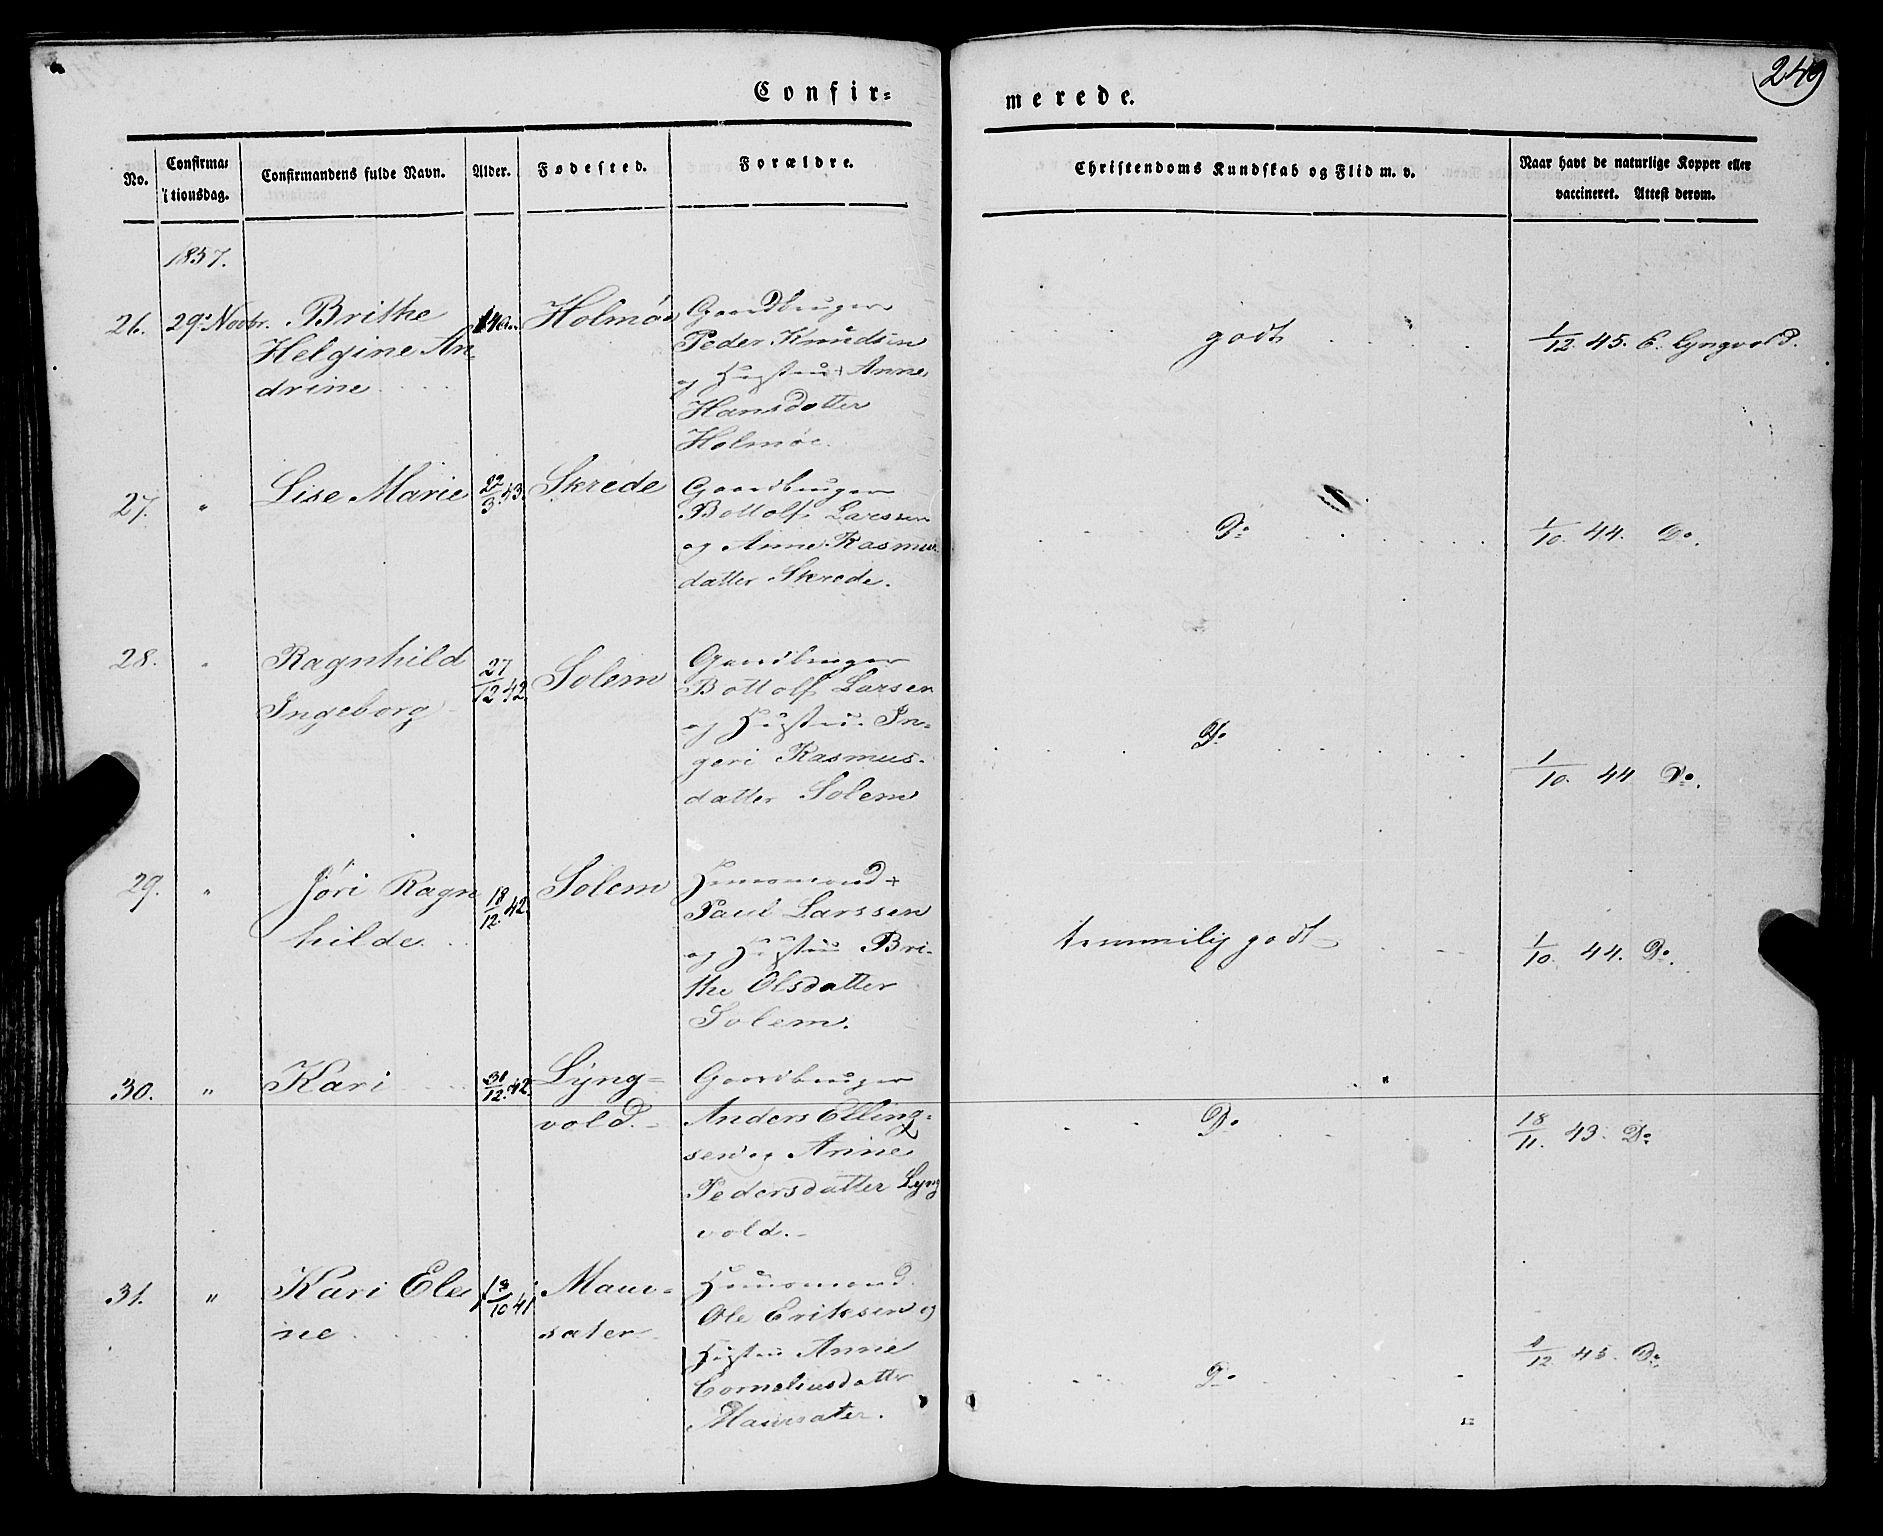 249
Confir-
merede.
No.
Confirma-
tionsdag.
Confirmandens fulde Navn.
Alder.
Fødested.
Forældre.
Christendoms Kundskab og Flid m. v.
Naar havt de naturlige Kopper eller
vaccineret. Attest derom.
1857.
26. 29. Novbr. Brithe
Helgine An
drine
14 a. Holmøe
Gaardbruger
Peder Knudsen
og Hustru Anne
Hansdatter
Holmøe.
godt
1/12. 45. E. Lyngvold.
27. " Lise Marie 22/3. 43. Skrede
Gaardbruger
Bottolf Larssen
og Anne Rasmus
datter Skrede.
Do
1/10. 44. Do.
28. " Ragnhild
Ingeborg
27/12 42. Solem
Gaardbruger
Bottolf Larsen
og Hustru In-
geri Rasmus-
datter Solem
Do
1/10. 44 Do.
29. " Jøri Ragn
hilde
18/12. 42. Solem
Huusmand
Paul Larssen
og Hustru Bri-
the Olsdatter
Solem.
temmelig godt
1/10. 44. Do.
30. " Kari 31/12. 42. Lyng-
vold.
Gaardbruger
Anders Elling-
sen og Anne
Pedersdatter Lyng
vold.
Do
18/11. 43. Do
31. " Kari Ele
ne
13/10 41 Maur-
sater
Huusmand
Ole Eriksen og
Hustru Anne
Corneliusdatter
Maursater.
Do
1/12. 45. Do.